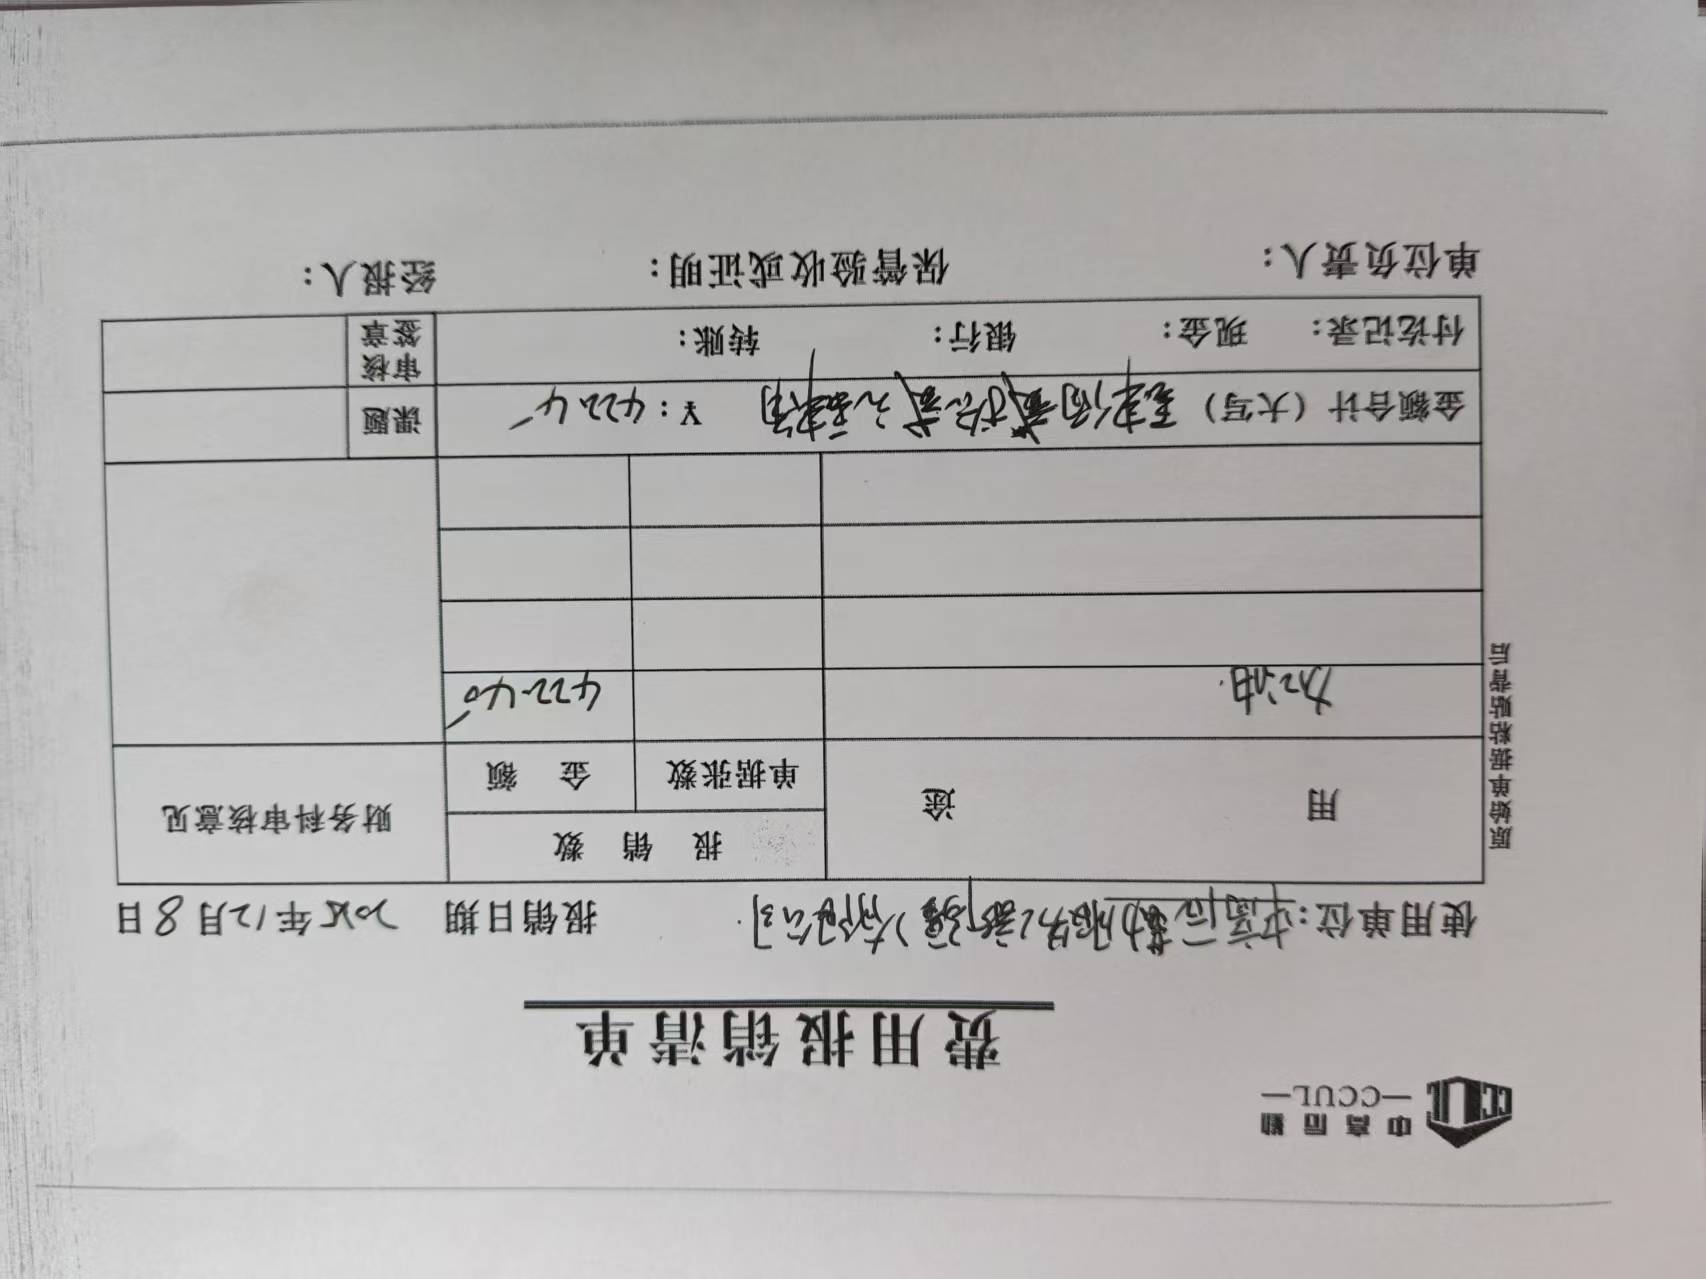 中高后勤
—CCUL—
CCUL
费用报销清单
使用单位：中高后勤服务(新疆)有限公司. 报销日期 2025年12月8日
用 途 报 销 数 财务科审核意见
单据张数 金 额
加油. 422.40
原始单据粘贴背后
金额合计（大写） 肆佰贰拾贰元肆角 ￥：422.4 课题
付讫记录： 现金： 银行： 转账： 审核签章
单位负责人： 保管验收或证明： 经报人：